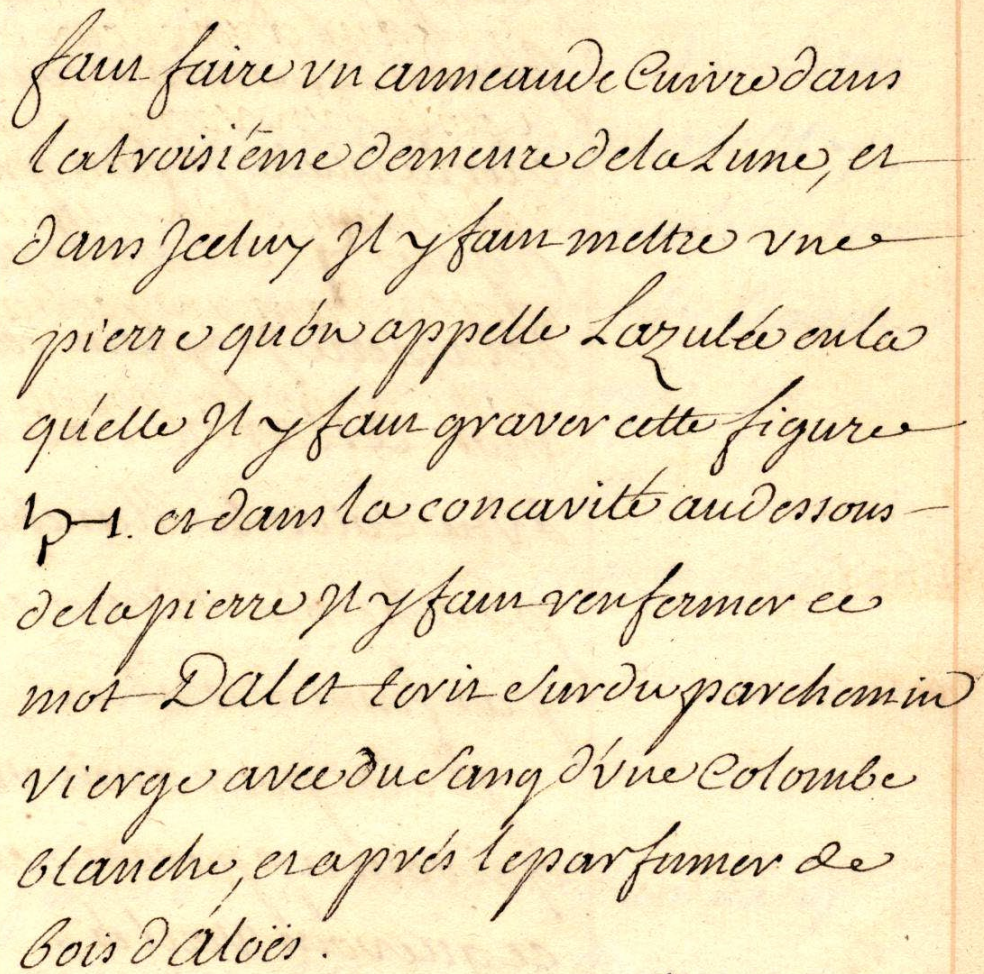 faut faire vn anneau de Cuivre dans
la troisiéme demeure de la Lune, et
dans Jceluy Jl y faut mettre vne
pierre qu'on appelle Lazulée en la
qu'elle Jl y faut graver cette figure
et dans la concavité au dessous
de la pierre Jl y faut renfermer ce
mot Dalet Ecrit sur du parchemin
vierge avec du sang d'vne Colombe
blanche, et aprés le parfumer de
bois d'Aloës.